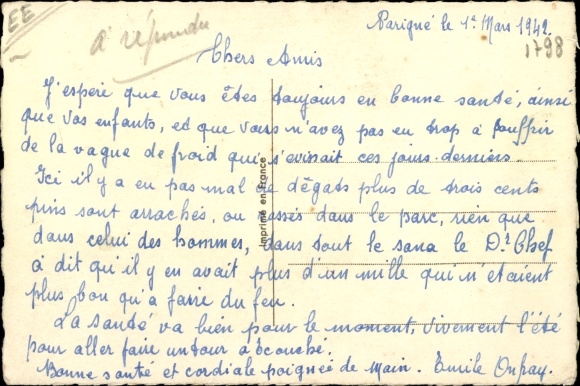 EE
à répondre
Parigné le 1er Mars 1942
1798
Chers Amis
J'espère que vous êtes toujours en bonne santé, ainsi
que vos enfants, et que vous n'avez pas eu trop à souffrir
de la vague de froid qui s'évissait ces jours derniers.
Ici il y a eu pas mal de dégats plus de trois cents
pins sont arrachés, ou cassés dans le parc, rien que
dans celui des hommes, dans tout le sana le Dr Chef
à dit qu'il y en avait plus d'un mille qui n'étaient
plus bon qu'à faire du feu.
La santé va bien pour le moment, vivement l'été
pour aller faire un tour à écouché.
Bonne santé et cordiale poignée de Main. Émile
Imprimé en France